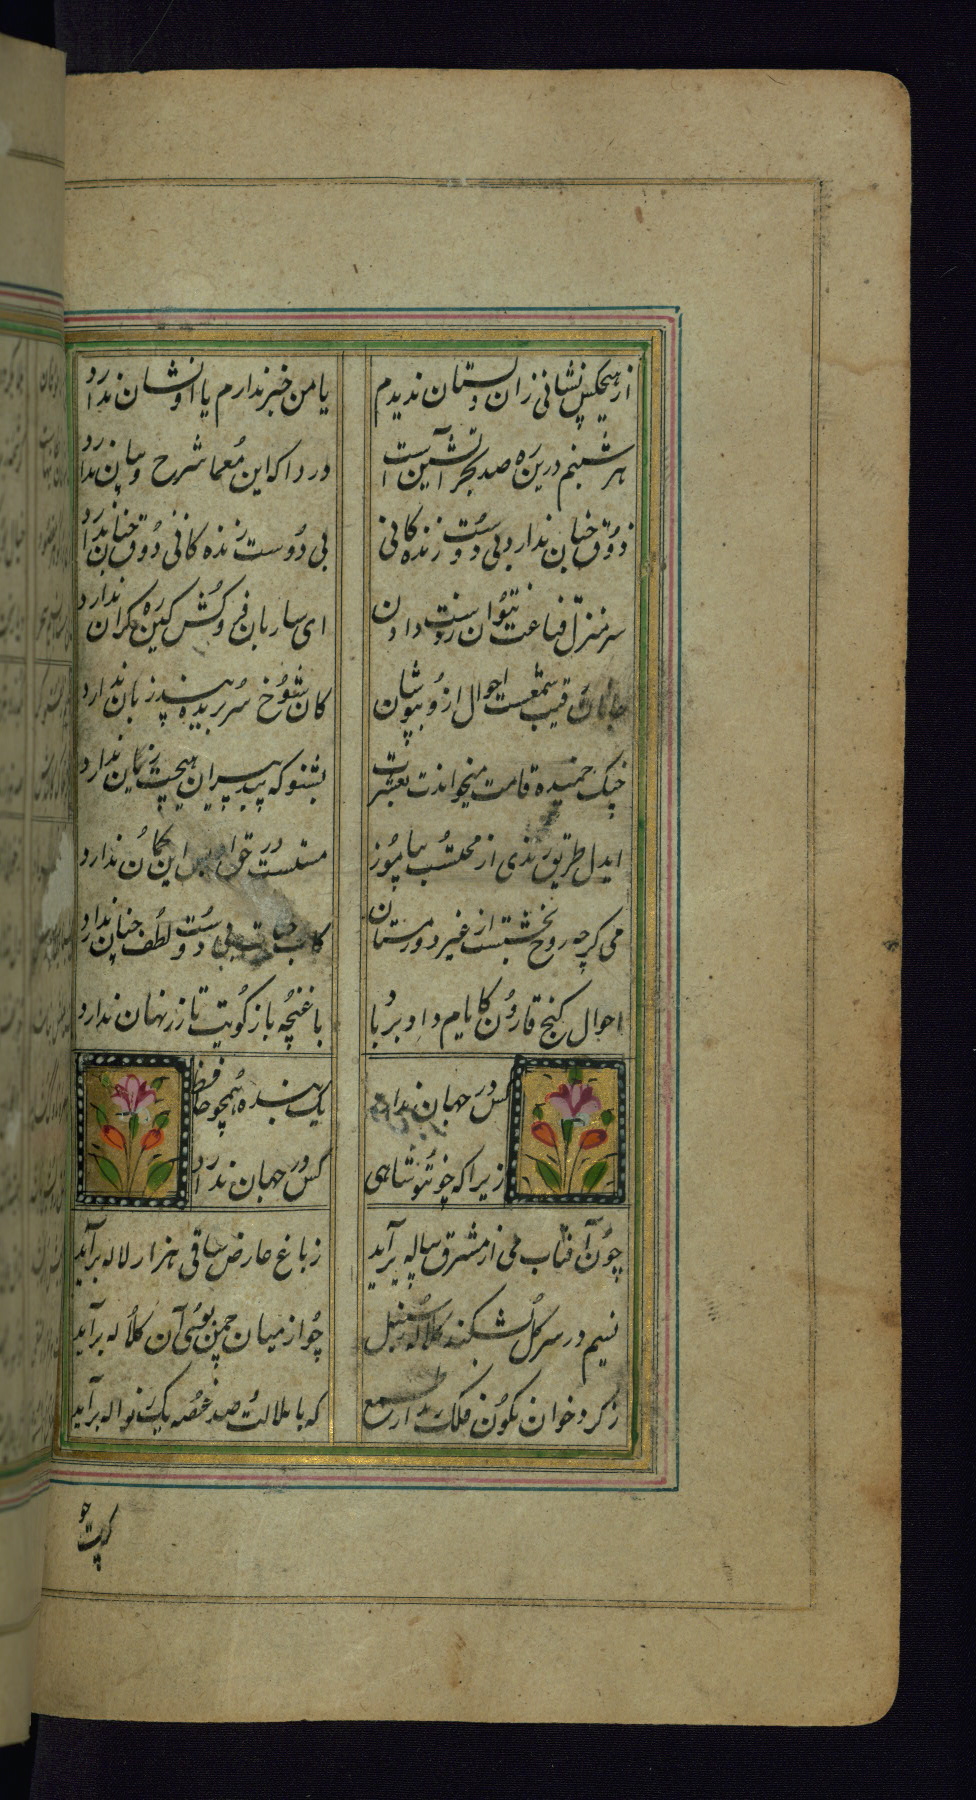 از هیچکس نشانی زان دلستان ندیدم یا من خبر ندارم یا او نشان ندارد
هر شبنم درین ره صد بحر آتشین است دردا که این معما شرح و بیان ندارد
ذوق چنان ندارد بی دوست زنده کانی بی دوست زنده کانی ذوق چنان ندارد
سر منزل قناعت نتوان ز دست دادن ای ساربان فروکش کین ره کران ندارد
احوال ازو بپوشان کان شوخ سر بریده بند زبان ندارد
چنک خمیده قامت میخواندت بعشرت بشنو که پند پیران هیچت زیان ندارد
ایدل طریق رندی از محتسب بیاموز مستست و در حق او کس این کمان ندارد
می کرچه روح بخشست از غیر دور مستان بی دوست لطف چنان ندارد
احوال کنج قارون کایام داد بر باد با غنچه باز کویت تا زر نهان ندارد
کس در جهان ندارد یک بنده همچو حافظ
زیرا که چو تو شاهی کس در جهان ندارد
چون آفتاب می از مشرق پیاله برآید ز باغ عارض ساقی هزار لاله برآید
نسیم در سر کل بشکند کلاله سنبل چو از میان چمن بوی آن کلاله برآید
ز کرد خوان نکون فلک طمع که با ملالت صد غصه یک نواله برآید